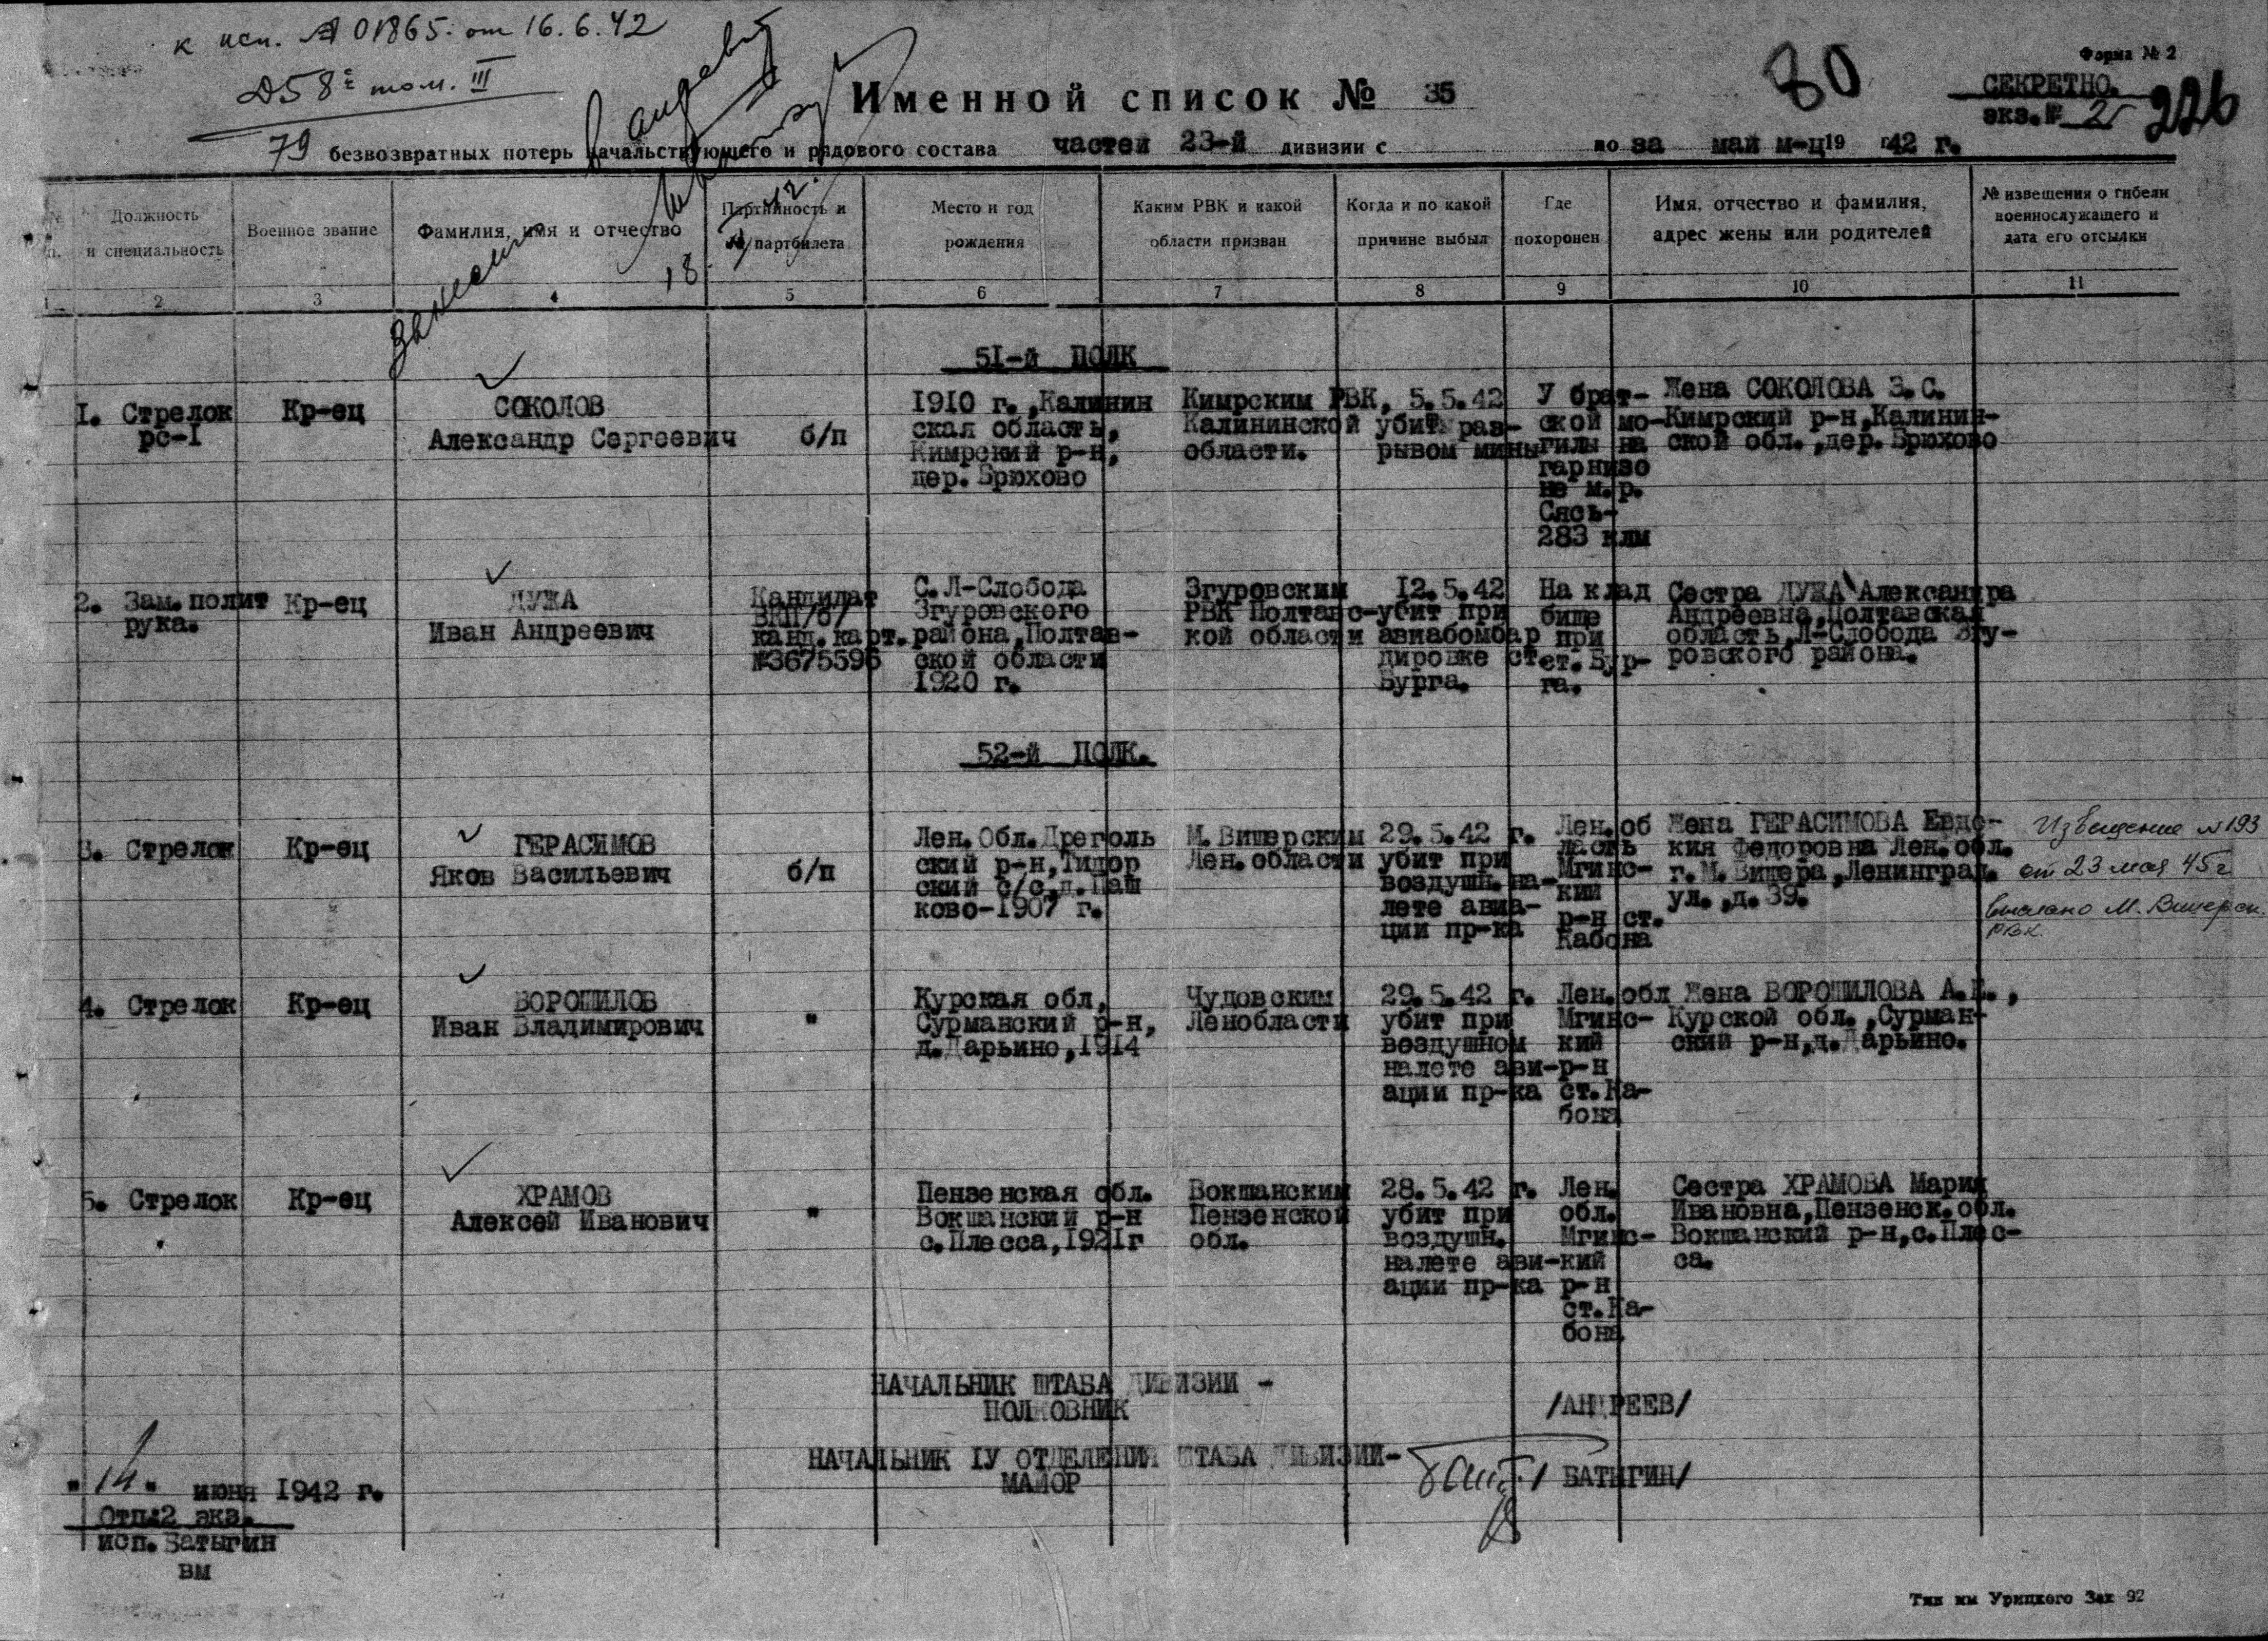 к исх. № 01865 от 16.6.42
Д58с том. III
Форма № 2
80
СЕКРЕТНО.
экз.№ 2
226
Именной список № 35
79 безвозвратных потерь начальствующего и рядового состава частей 23-й дивизии с по за май м-ц 19 г42 г.
Должность и специальность
Военное звание
Фамилия, имя и отчество
Партийность и № партбилета
Место и год рождения
Каким РВК и какой области призван
Когда и по какой причине выбыл
Где похоронен
Имя, отчество и фамилия, адрес жены или родителей
№ извещения о гибели военнослужащего и дата его отсылки
1 2 3 4 5 6 7 8 9 10 11
51-й ПОЛК
1. Стрелок
рс-1
Кр-ец
СОКОЛОВ
Александр Сергеевич
б/п
1910 г.,Калинин
ская область,
Кимрский р-н,
дер. Брюхово
Кимрским РВК,
Калининской
области.
5.5.42
убит раз-
рывом мины
У брат-
ской мо-
гилы на
гарнизо
не м.р.
Сясь-
283 клм
Жена СОКОЛОВА З.С.
Кимрский р-н,Калинин-
ской обл.,дер. Брюхово
2. Зам.полит
рука.
Кр-ец
ДУЖА
Иван Андреевич
Кандидат
ВКП/б/
канд.карт.
№3675596
С.Л-Слобода
Згуровского
района,Полтав-
ской области
1920 г.
Згуровским
РВК Полтавс-
кой области
12.5.42
убит при
авиабомбар
дировке ст
Бурга.
На клад
бище
при
ст. Бур-
га.
Сестра ДУЖА Александра
Андреевна,Полтавская
область,Л-Слобода Згу-
ровского района.
52-й ПОЛК.
3. Стрелок
Кр-ец
ГЕРАСИМОВ
Яков Васильевич
б/п
Лен.Обл.Дреголь
ский р-н,Тидор
ский с/с,д.Паш
ково-1907 г.
М.Вишерским
Лен.области
29.5.42 г.
убит при
воздушн.на-
лете авиа-
ции пр-ка
Лен.об
ласть
Мгинс-
кий
р-н ст.
Кабона
Жена ГЕРАСИМОВА Евдо-
кия Федоровна Лен.обл.
г.М.Вишера,Ленинград.
ул.,д.39.
Извещение №193
от 23 мая 45 г
выслано М.Вишерск.
РВК.
4. Стрелок
Кр-ец
ВОРОШИЛОВ
Иван Владимирович
"
Курская обл,
Сурманский р-н,
д.Дарьино,1914
Чудовским
Ленобласти
29.5.42 г.
убит при
воздушном
налете ави-
ации пр-ка
Лен.обл
Мгинс-
кий
р-н
ст.Ка-
бона
Жена ВОРОШИЛОВА А.Е.,
Курской обл.,Сурман-
ский р-н,д.Дарьино.
5. Стрелок
Кр-ец
ХРАМОВ
Алексей Иванович
"
Пензенская обл.
Вокшанский р-н
с.Плесса,1921г
Вокшанским
Пензенской
обл.
28.5.42 г.
убит при
воздушн.
налете ави-
ации пр-ка
Лен.
обл.
Мгинс-
кий
р-н
ст.Ка-
бона
Сестра ХРАМОВА Мария
Ивановна,Пензенск.обл.
Вокшанский р-н,с.Плес-
са.
НАЧАЛЬНИК ШТАБА ДИВИЗИИ -
ПОЛКОВНИК
/АНДРЕЕВ/
НАЧАЛЬНИК IУ ОТДЕЛЕНИЯ ШТАБА ДИВИЗИИ-
МАЙОР
/БАТЫГИН/
"14" июня 1942 г.
Отп.2 экз.
исп.Батыгин
вм
Тип им Урицкого Зак 92